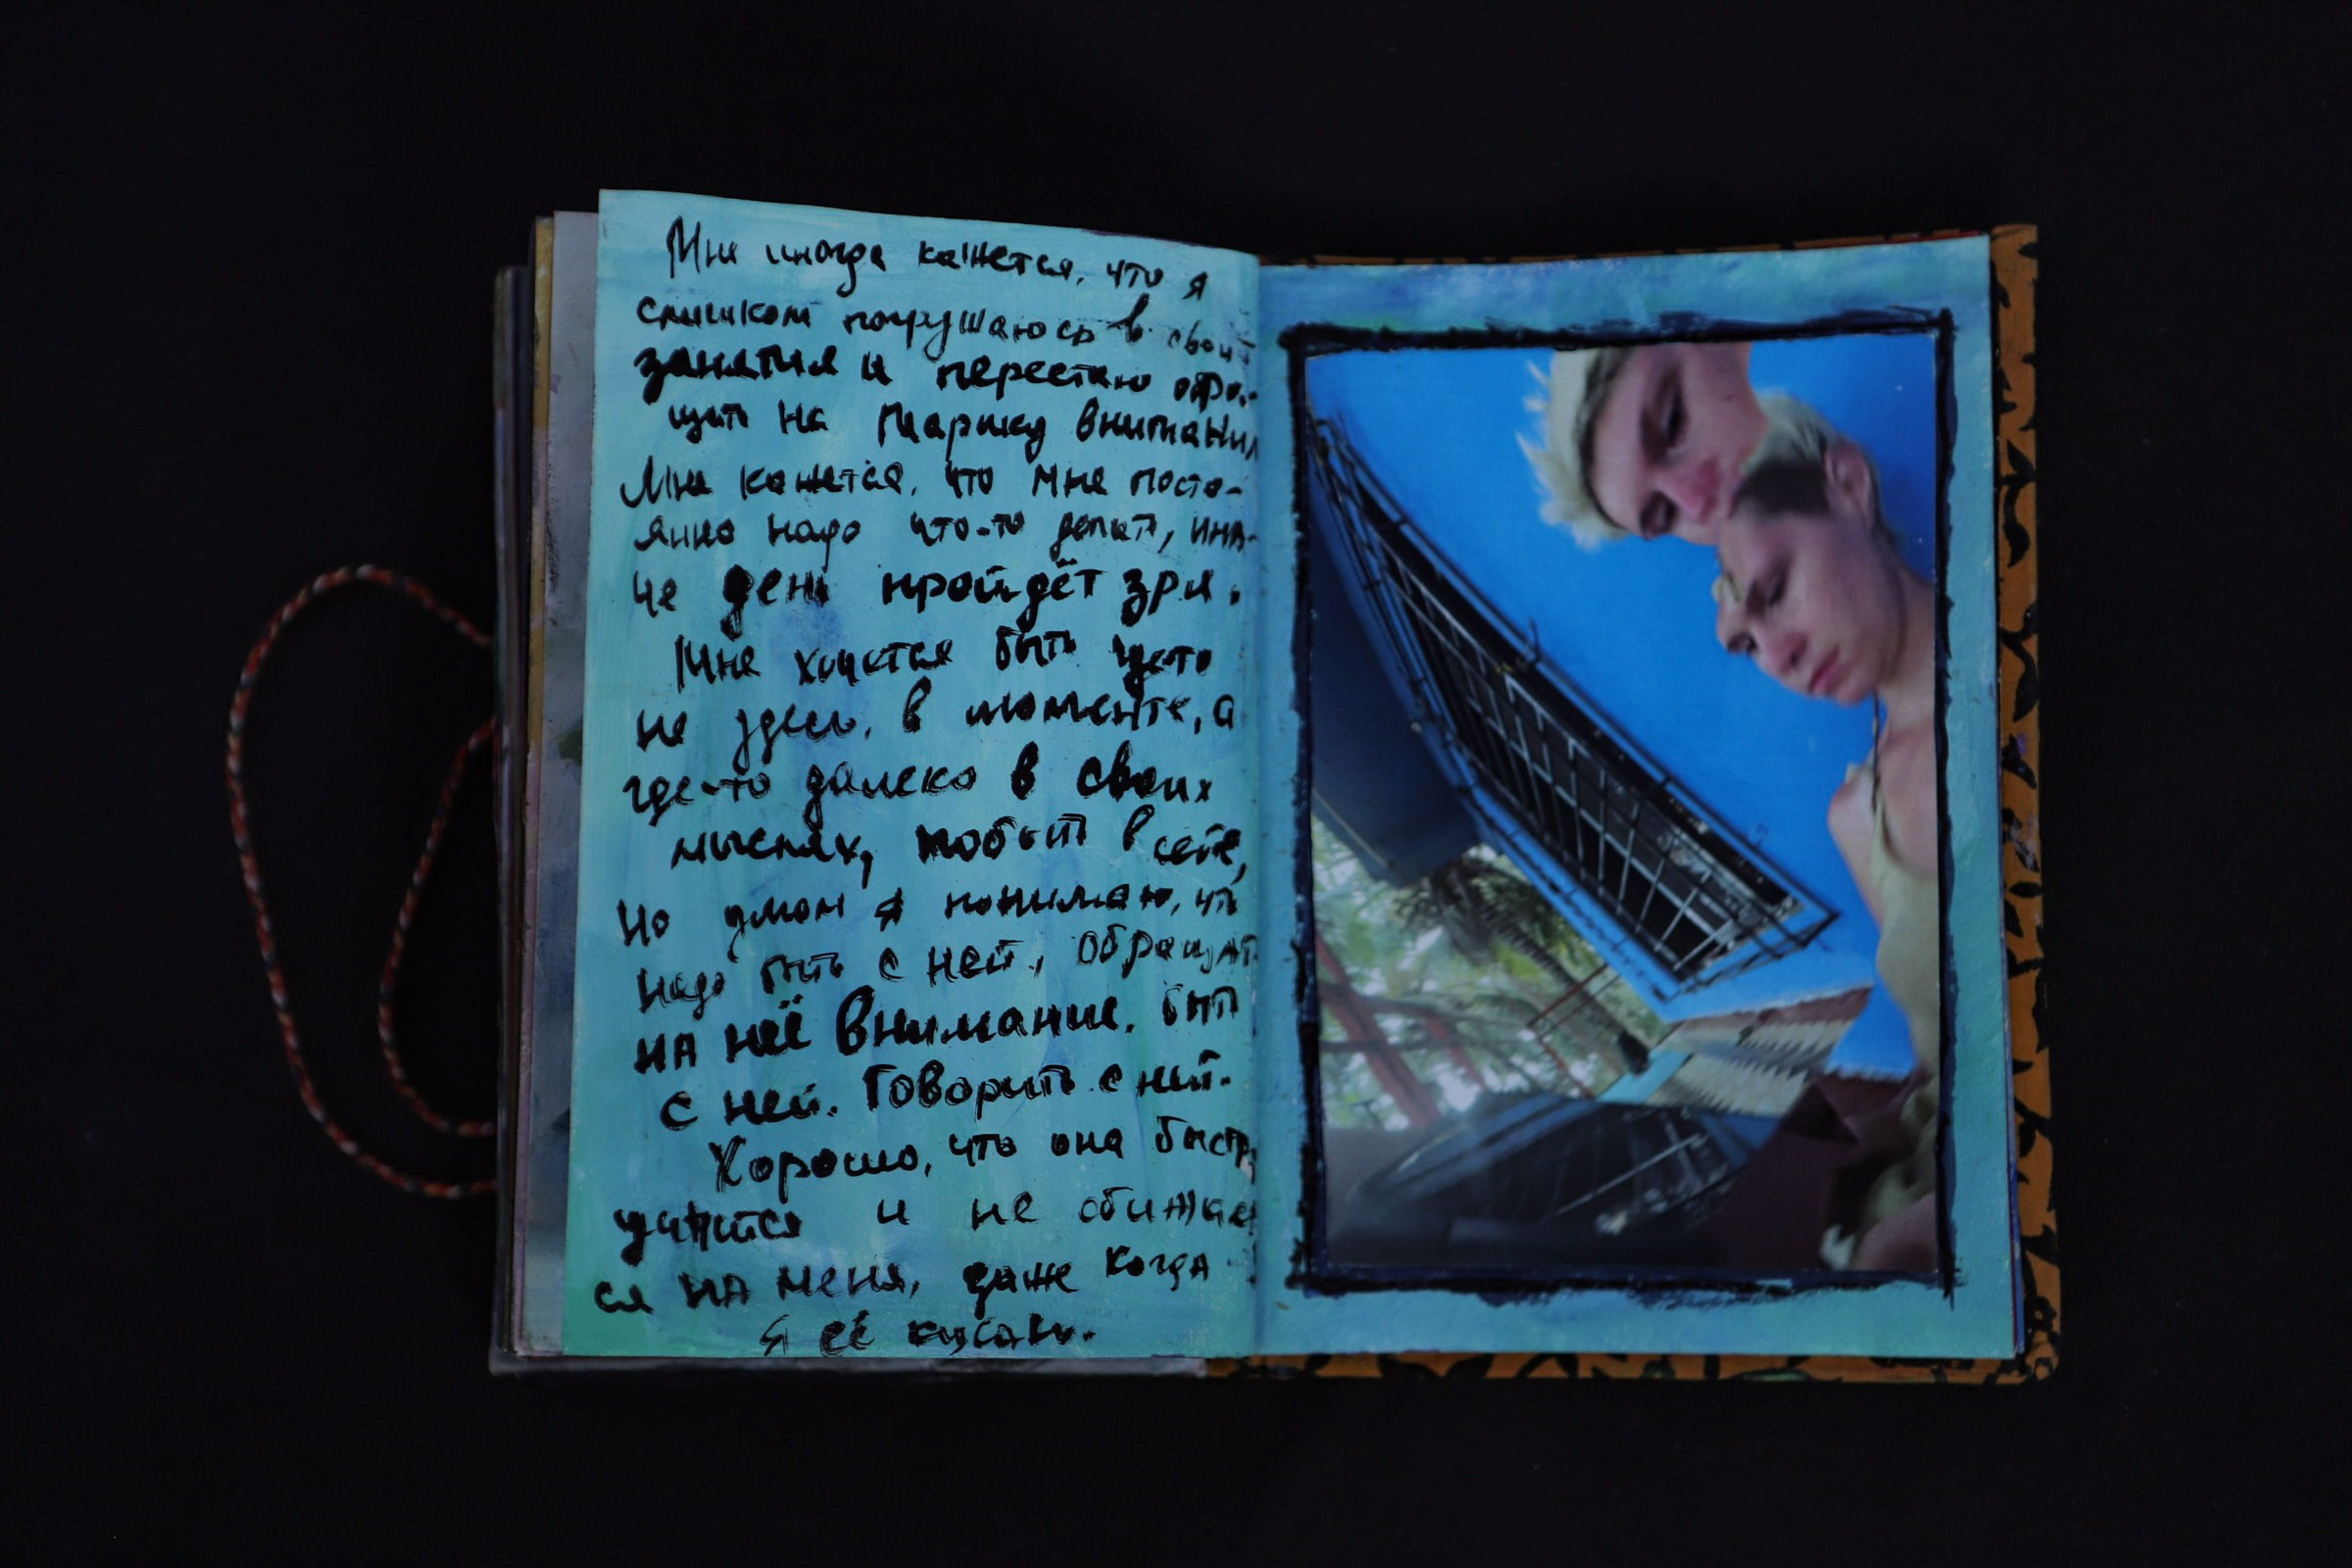 Мне иногда кажется, что я
слишком погружаюсь в свои
занятия и перестаю обра-
щать на Маришку внимание
Мне кажется, что мне посто-
янно надо что-то делать, ина-
че день пройдёт зря.
Мне хочется быть где-то
не здесь, в моменте, а
где-то далеко в своих
мыслях, побыть в себе,
Но умом я понимаю, что
надо быть с ней, обращать
на неё внимание. Быть
с ней. Говорить с ней.
Хорошо, что она быстро
и не обижает
ся на меня, даже когда
я её кусаю.